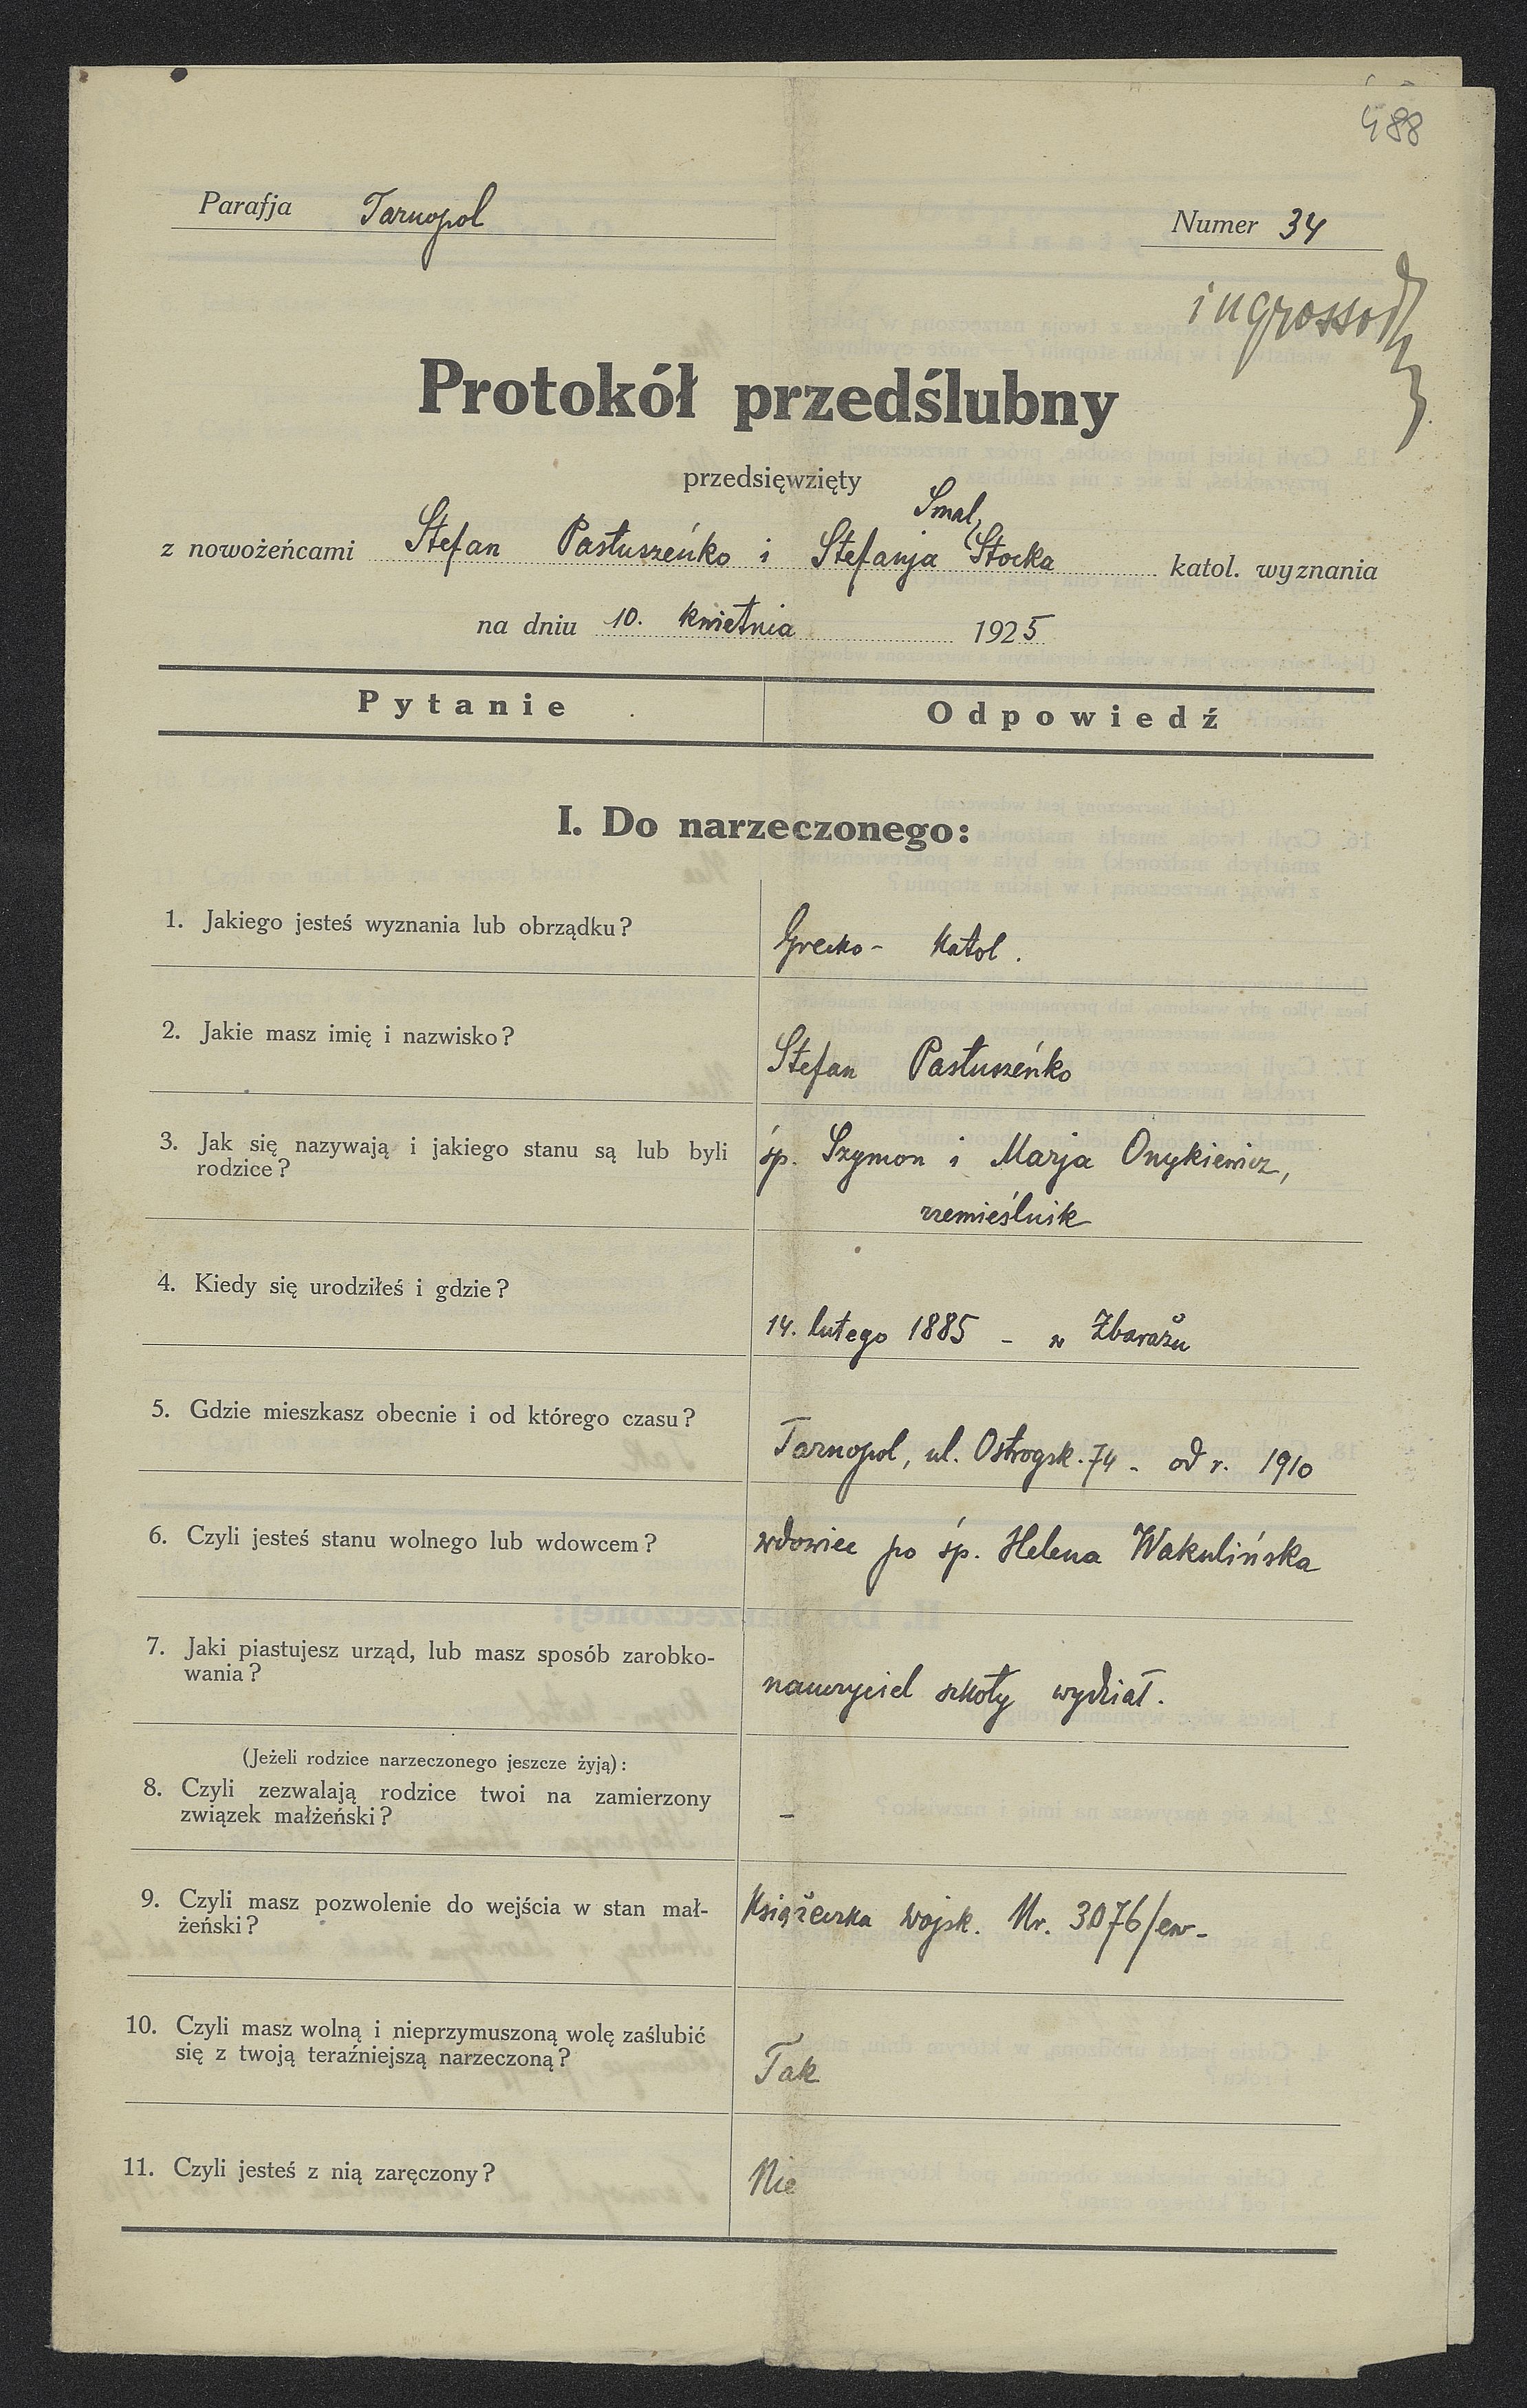 488
Parafja Tarnopol
Numer 34
ingrossov
Protokół przedślubny
przedsięwzięty
Smal,
z nowożeńcami Stefan Pastuszeńko i Stefanja Stocka katol. wyznania
na dniu 10. kwietnia 1925
Pytanie
Odpowiedź
I. Do narzeczonego:
1. Jakiego jesteś wyznania lub obrządku?
Grecko- katol.
2. Jakie masz imię i nazwisko?
Stefan Pastuszeńko
3. Jak się nazywają i jakiego stanu są lub byli
rodzice?
śp. Szymon i Marja Onykiewicz,
rzemieślnik
4. Kiedy się urodziłeś i gdzie?
14. lutego 1885 - w Zbarażu
5. Gdzie mieszkasz obecnie i od którego czasu?
Tarnopol, ul. Ostrogsk. 74 - od r. 1910
6. Czyli jesteś stanu wolnego lub wdowcem?
wdowiec po śp. Helena Wakulińska
7. Jaki piastujesz urząd, lub masz sposób zarobko-
wania?
nauczyciel szkoły wydział.
(Jeżeli rodzice narzeczonego jeszcze żyją):
8. Czyli zezwalają rodzice twoi na zamierzony
związek małżeński?
-
9. Czyli masz pozwolenie do wejścia w stan mał-
żeński?
Książeczka wojsk. Nr. 3076/ew-
10. Czyli masz wolną i nieprzymuszoną wolę zaślubić
się z twoją teraźniejszą narzeczoną?
Tak
11. Czyli jesteś z nią zaręczony?
Nie